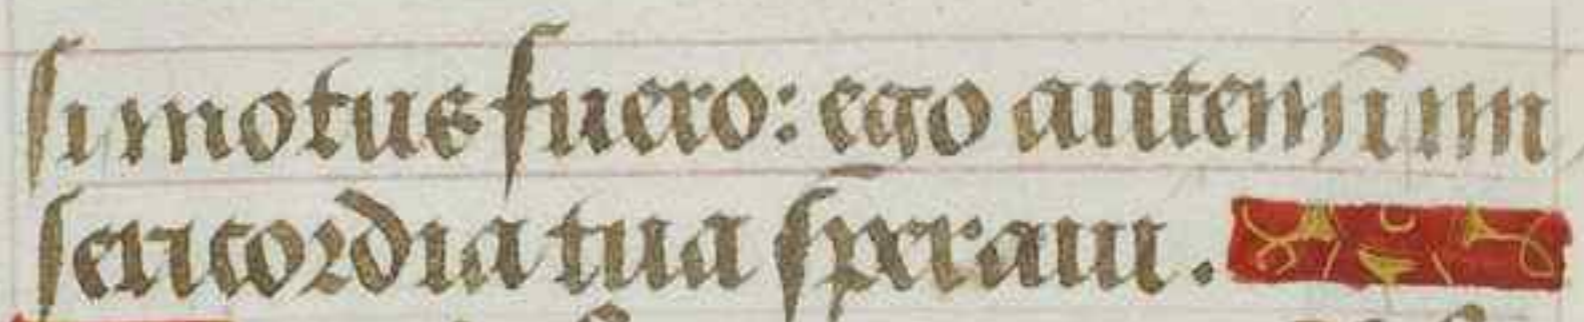 si motus fuero: ego autem ī mi
sericordia tua speraui.